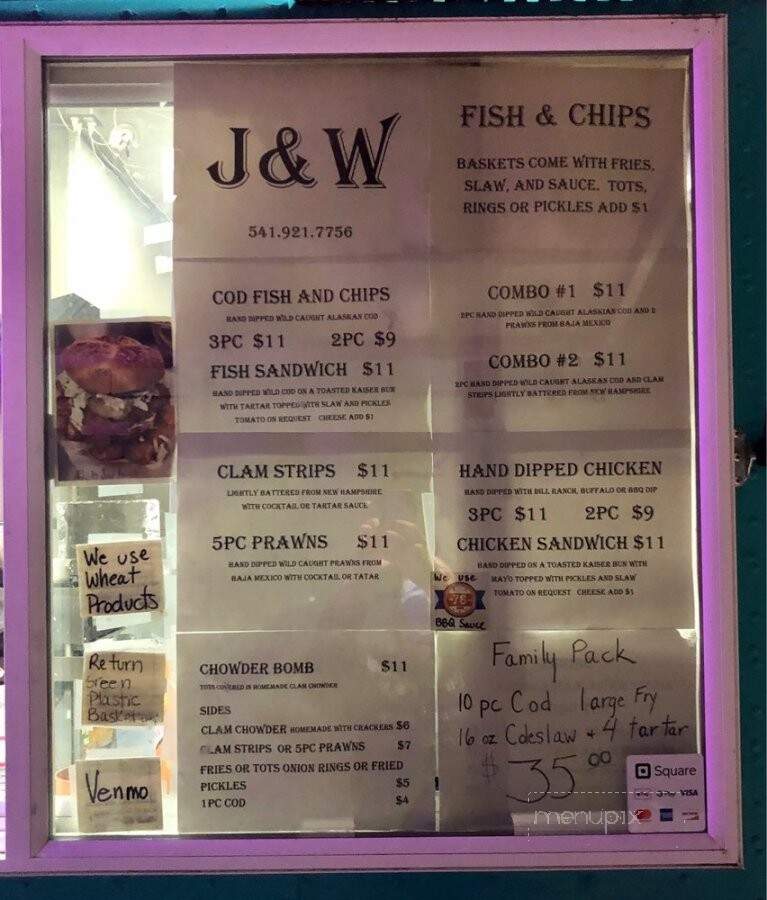 J & W
541.921.7756
FISH & CHIPS
BASKETS COME WITH FRIES,
SLAW, AND SAUCE. TOTS,
RINGS OR PICKLES ADD $1
COD FISH AND CHIPS
HAND DIPPED WILD CAUGHT ALASKAN COD
3PC $11 2PC $9
FISH SANDWICH $11
HAND DIPPED WILD COD ON A TOASTED KAISER BUN
WITH TARTAR TOPPED WITH SLAW AND PICKLES
TOMATO ON REQUEST CHEESE ADD $1
COMBO #1 $11
2PC HAND DIPPED WILD CAUGHT ALASKIAN COD AND 2
PRAWNS FROM BAJA MEXICO
COMBO #2 $11
2PC HAND DIPPED WILD CAUGHT ALASKAN COD AND CLAM
STRIPS LIGHTLY BATTERED FROM NEW HAMPSHIRE
CLAM STRIPS $11
LIGHTLY BATTERED FROM NEW HAMPSHIRE
WITH COCKTAIL OR TARTAR SAUCE
5PC PRAWNS $11
HAND DIPPED WILD CAUGHT PRAWNS FROM
BAJA MEXICO WITH COCKTAIL OR TATAR
HAND DIPPED CHICKEN
HAND DIPPED WITH DILL RANCH, BUFFALO OR BBQ DIP
3PC $11 2PC $9
CHICKEN SANDWICH $11
HAND DIPPED ON A TOASTED KAISER BUN WITH
MAYO TOPPED WITH PICKLES AND SLAW
TOMATO ON REQUEST CHEESE ADD $1
We use
78
BBQ Sauce
We use
Wheat
Products
Return
Green
Plastic
Venmo
CHOWDER BOMB $11
TOTS COVERED IN HOMEMADE CLAM CHOWDER
SIDES
CLAM CHOWDER HOMEMADE WITH CRACKERS $6
CLAM STRIPS OR 5PC PRAWNS $7
FRIES OR TOTS ONION RINGS OR FRIED
PICKLES $5
1PC COD $4
Family Pack
10 pc Cod large Fry
16 oz Coleslaw + 4 tartar
$35.00
Square
VISA
menupix